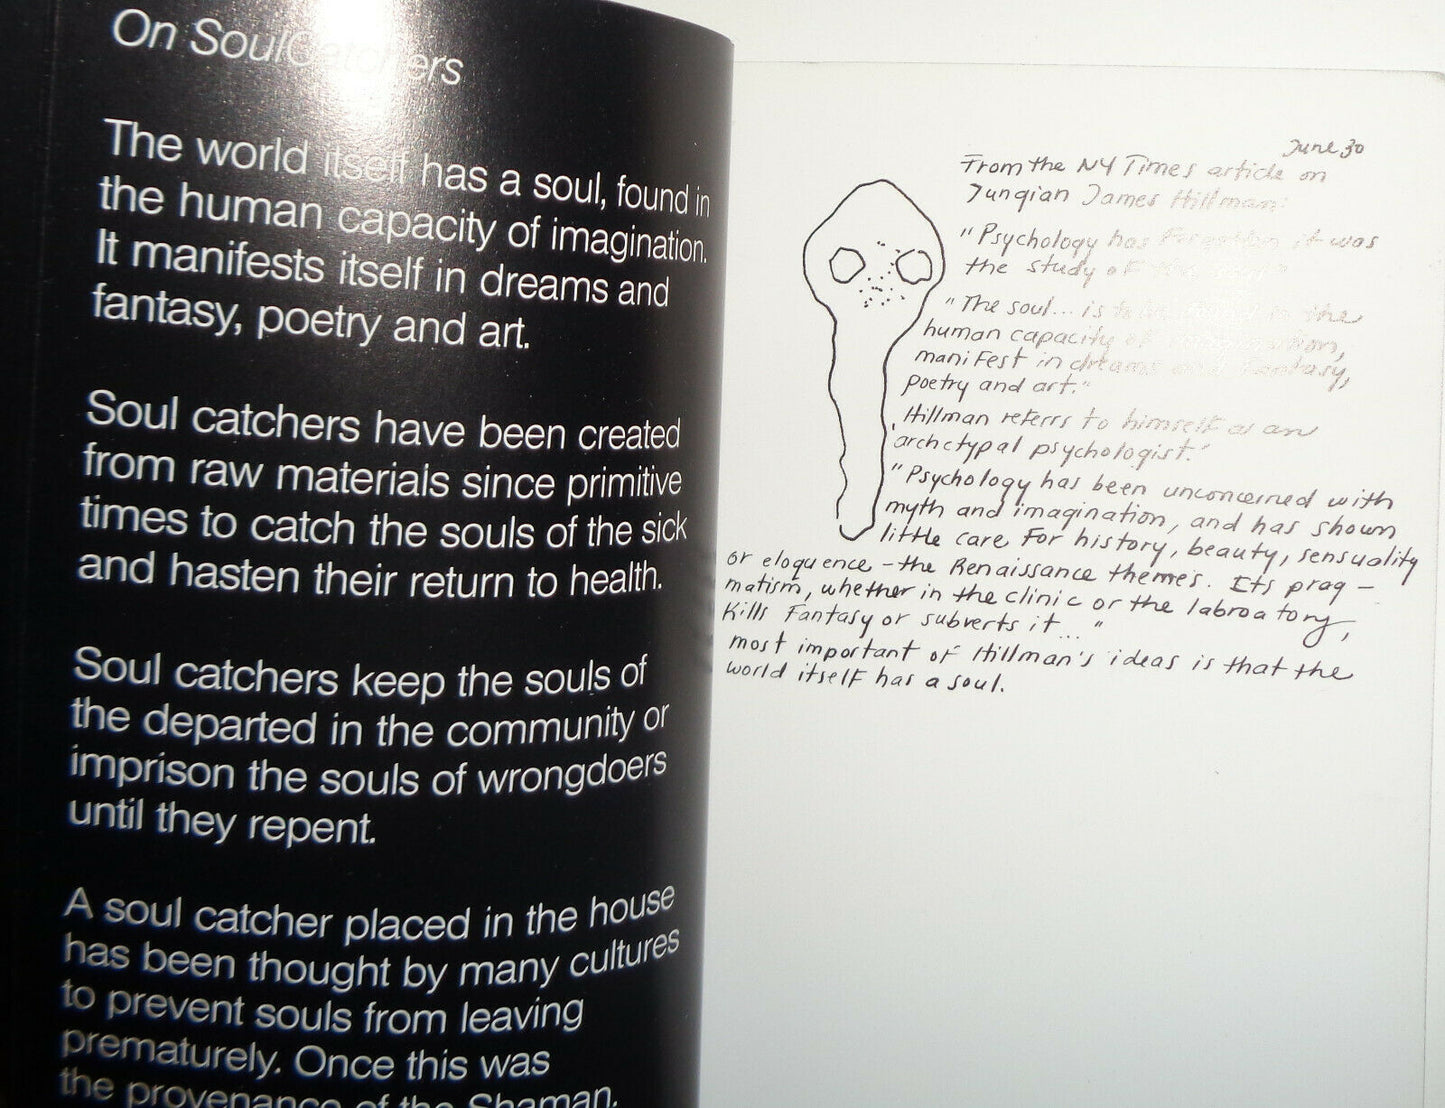 On SoulCatchers
The world itself has a soul, found in
the human capacity of imagination.
It manifests itself in dreams and
fantasy, poetry and art.
Soul catchers have been created
from raw materials since primitive
times to catch the souls of the sick
and hasten their return to health.
Soul catchers keep the souls of
the departed in the community or
imprison the souls of wrongdoers
until they repent.
A soul catcher placed in the house
has been thought by many cultures
to prevent souls from leaving
prematurely. Once this was
the provenance of the Shaman.
June 30
From the NY Times article on
Jungian James Hillman:
"Psychology has forgotten it was
the study of
"The soul... is to in the
human capacity of imagination,
manifest in dreams and fantasy,
poetry and art."
Hillman referrs to himself as an
'archetypal psychologist.'
"Psychology has been unconcerned with
myth and imagination, and has shown
little care for history, beauty, sensuality
or eloquence - the Renaissance themes. Its prag-
matism, whether in the clinic or the labroatory,
kills fantasy or subverts it..."
most important of Hillman's ideas is that the
world itself has a soul.